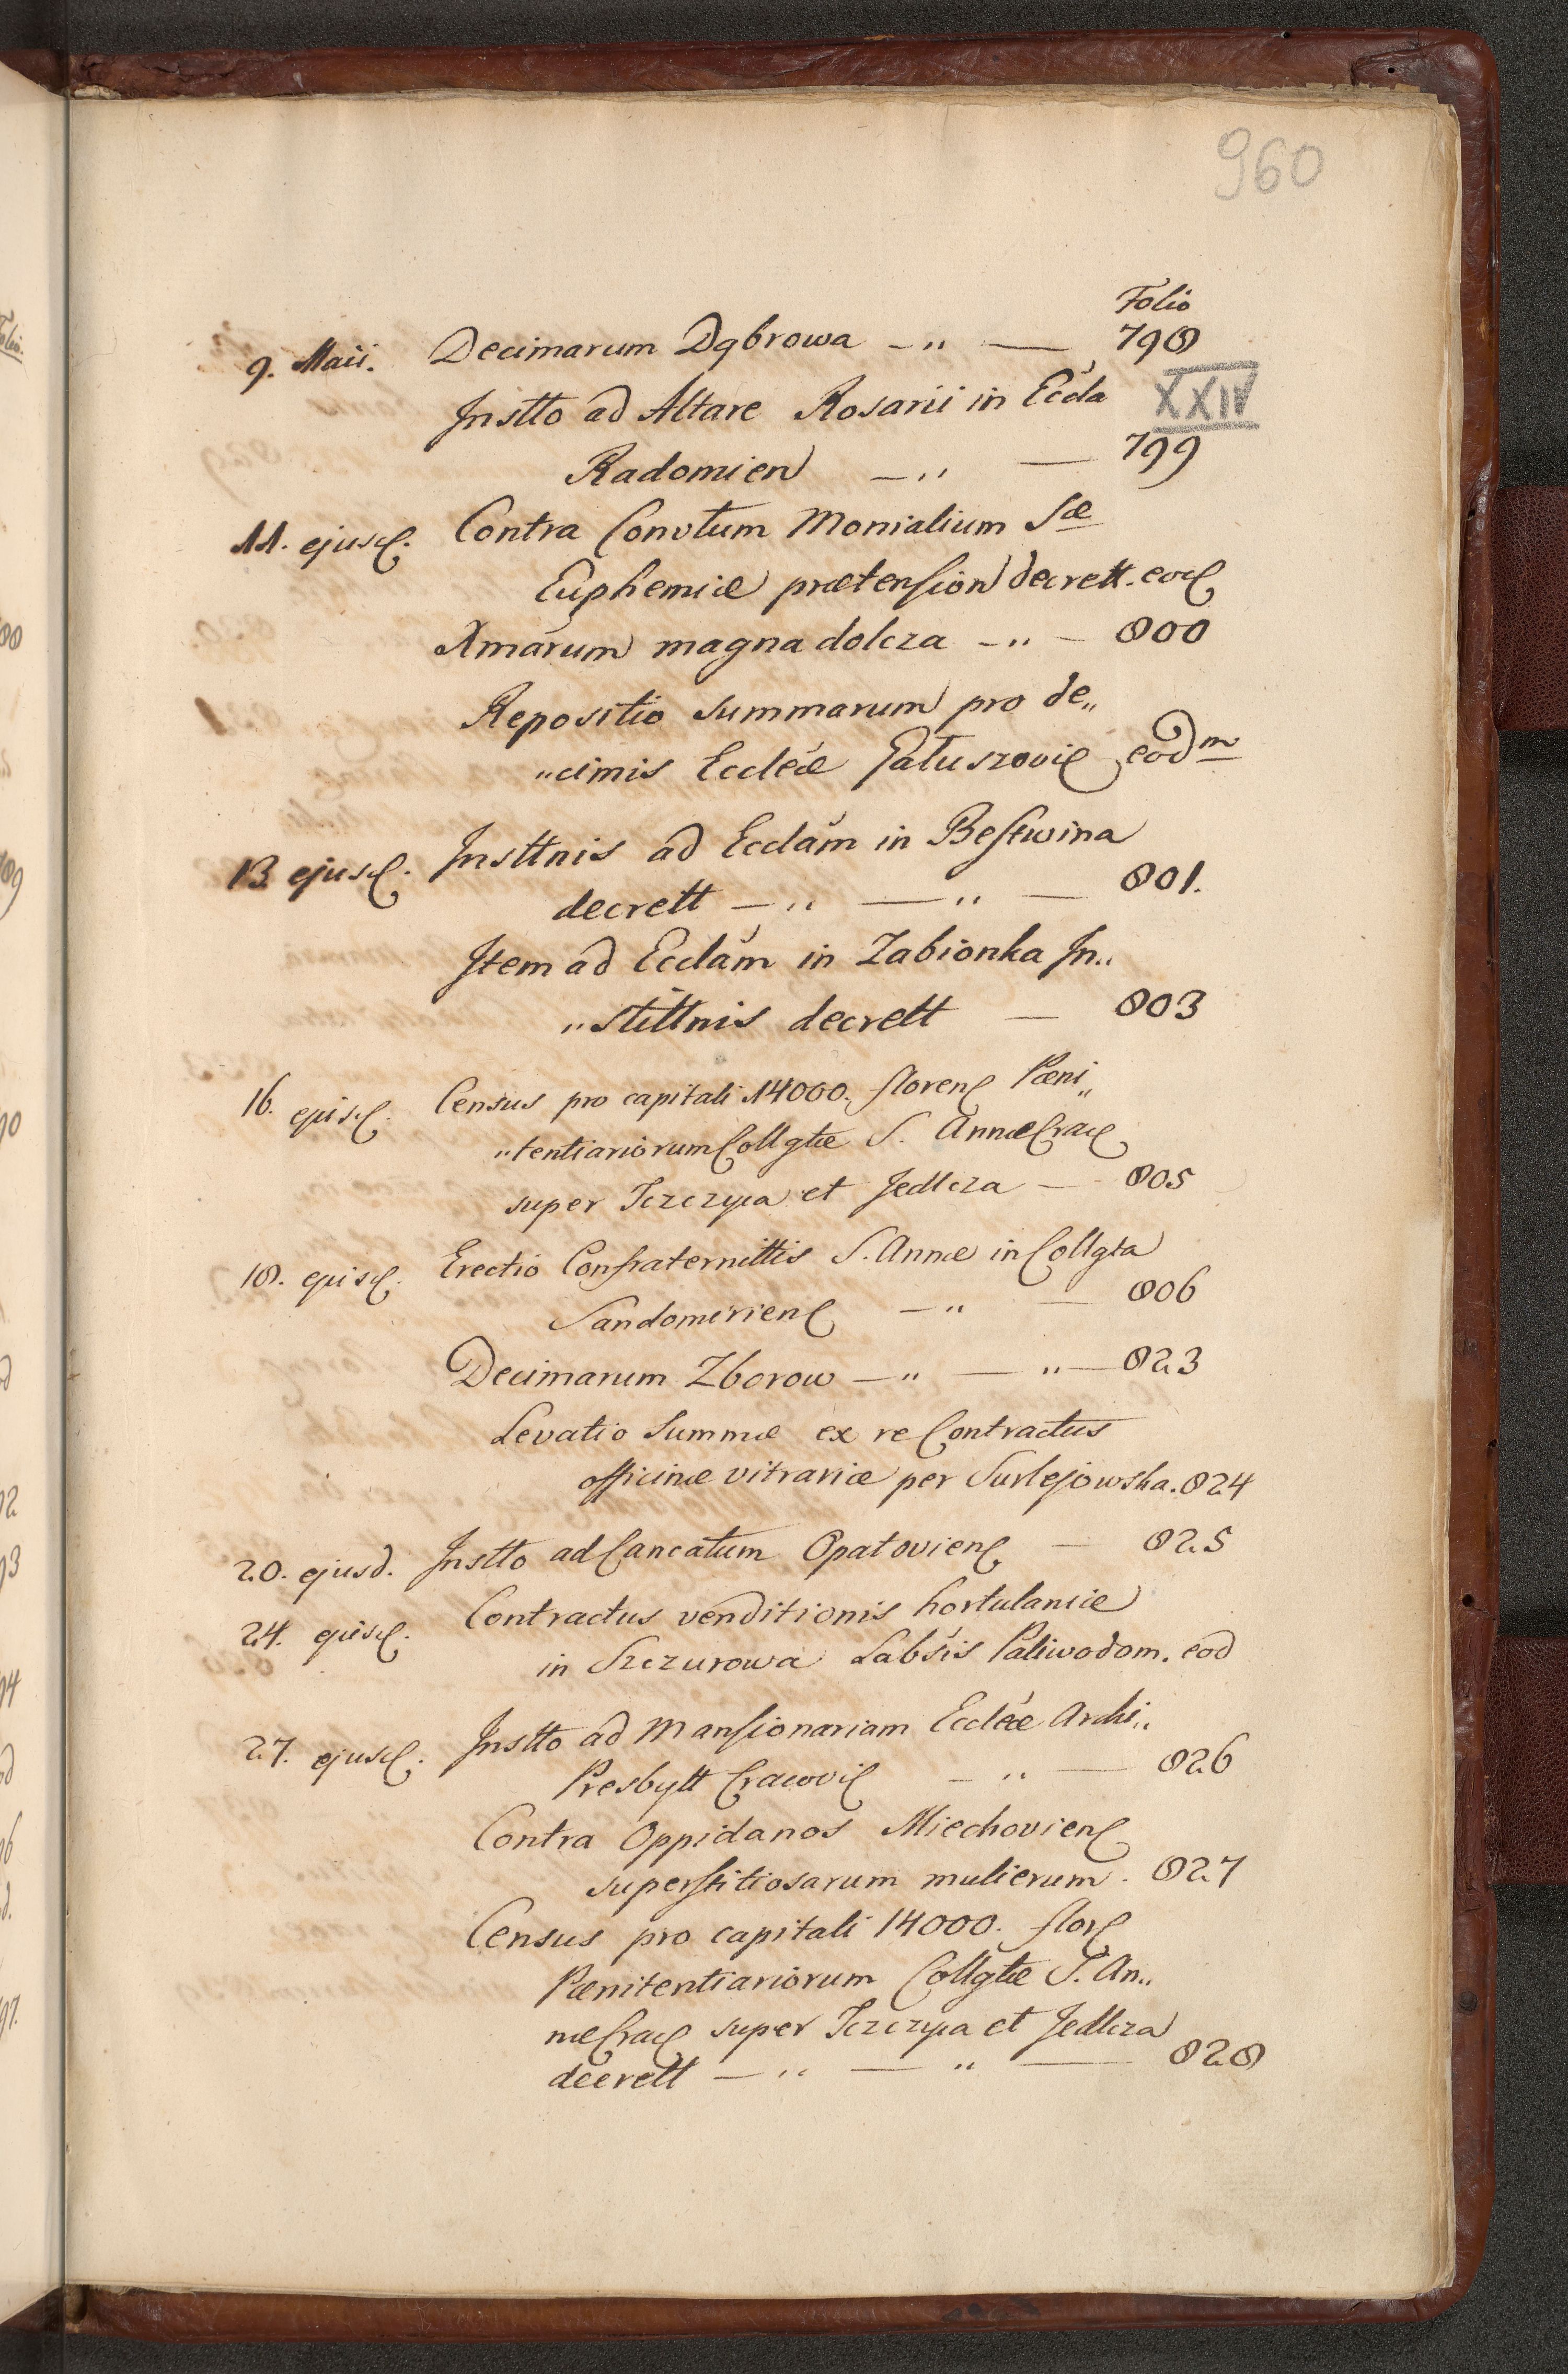 960
Folio
9. Maii. Decimarum Dąbrowa —„ — 798
Instto ad Altare Rosarii in Eccla XXIV
Radomien —„ — 799
11. ejusd. Contra Convtum Monialium Sæ
Euphemiæ prætension decrett. eod
Xmarum magna dolcza —„ — 800
Repositio summarum pro de„
„cimis Eccleæ Gałuszovic eodm
13 ejusd. Insttnis ad Ecclam in Bestwina
decrett —„ —„ — 801.
Item ad Ecclam in Zabionka In„
„stittnis decrett — 803
16. ejusd. Census pro capitali 14000. floren Pæni„
„tentiariorum Collgtæ S. Annæ Crac
super Tczczyca et Jedlcza — 805
18. ejusd. Erectio Confraternittis S. Annæ in Collgta
Sandomirien —„ — 806
Decimarum Zborow —„ —„ — 823
Levatio Summæ ex re Contractus
officinæ vitrariæ per Surlejowska. 824
20. ejusd. Instto ad Cancatum Opatovien — 825
24. ejusd. Contractus venditionis hortulaniæ
in Szczurowa Labsis Paliwodom. eod
27. ejusd. Instto ad Mansionariam Eccleæ Archi„
Presbytt Cracovi —„ — 826
Contra Oppidanos Miechovien
superstitiosarum mulierum. 827
Census pro capitali 14000. flor
Pænitentiariorum Collgtæ S. An„
næ Crac super Tczczyca et Jedlcza
decrett —„ —„ — 828